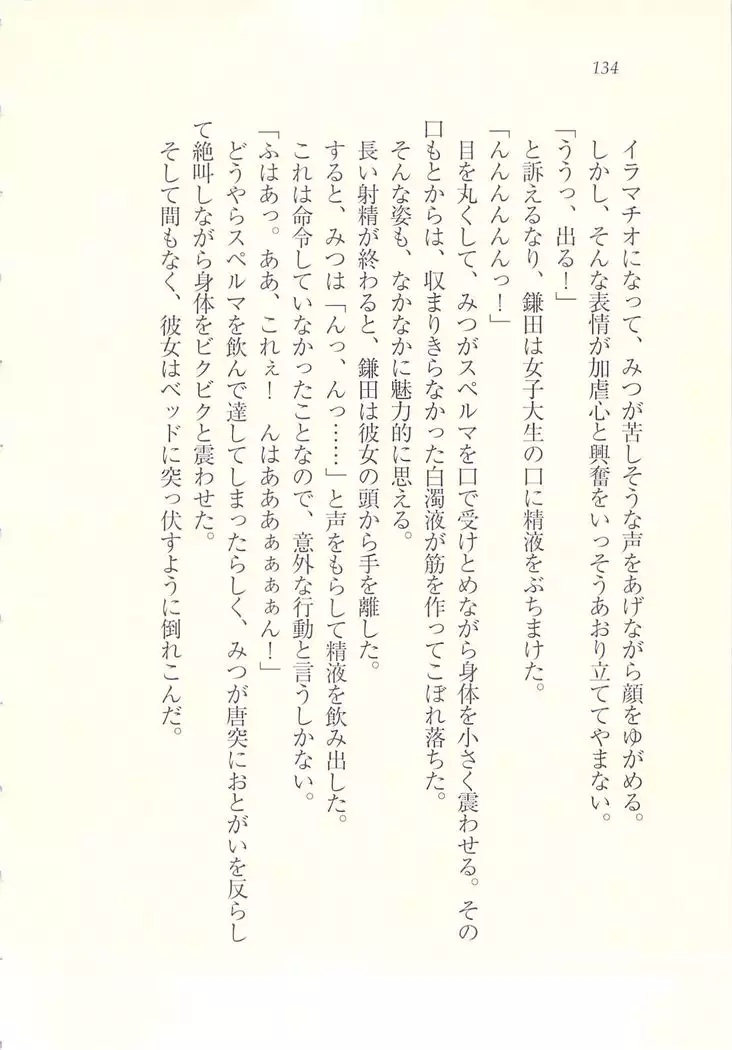 134
イラマチオになって、みつが苦しそうな声をあげながら顔をゆがめる。
しかし、そんな表情が加虐心と興奮をいっそうあおり立ててやまない。
「ううっ、出る！」
と訴えるなり、鎌田は女子大生の口に精液をぶちまけた。
「んんんんんんっ！」
目を丸くして、みつがスペルマを口で受けとめながら身体を小さく震わせる。その
口もとからは、収まりきらなかった白濁液が筋を作ってこぼれ落ちた。
そんな姿も、なかなかに魅力的に思える。
長い射精が終わると、鎌田は彼女の頭から手を離した。
すると、みつは「んっ、んっ……」と声をもらして精液を飲み出した。
これは命令していなかったことなので、意外な行動と言うしかない。
「ふはあっ。ああ、これぇ！　んはあああぁぁぁぁん！」
どうやらスペルマを飲んで達してしまったらしく、みつが唐突におとがいを反らし
て絶叫しながら身体をビクビクと震わせた。
そして間もなく、彼女はベッドに突っ伏すように倒れこんだ。